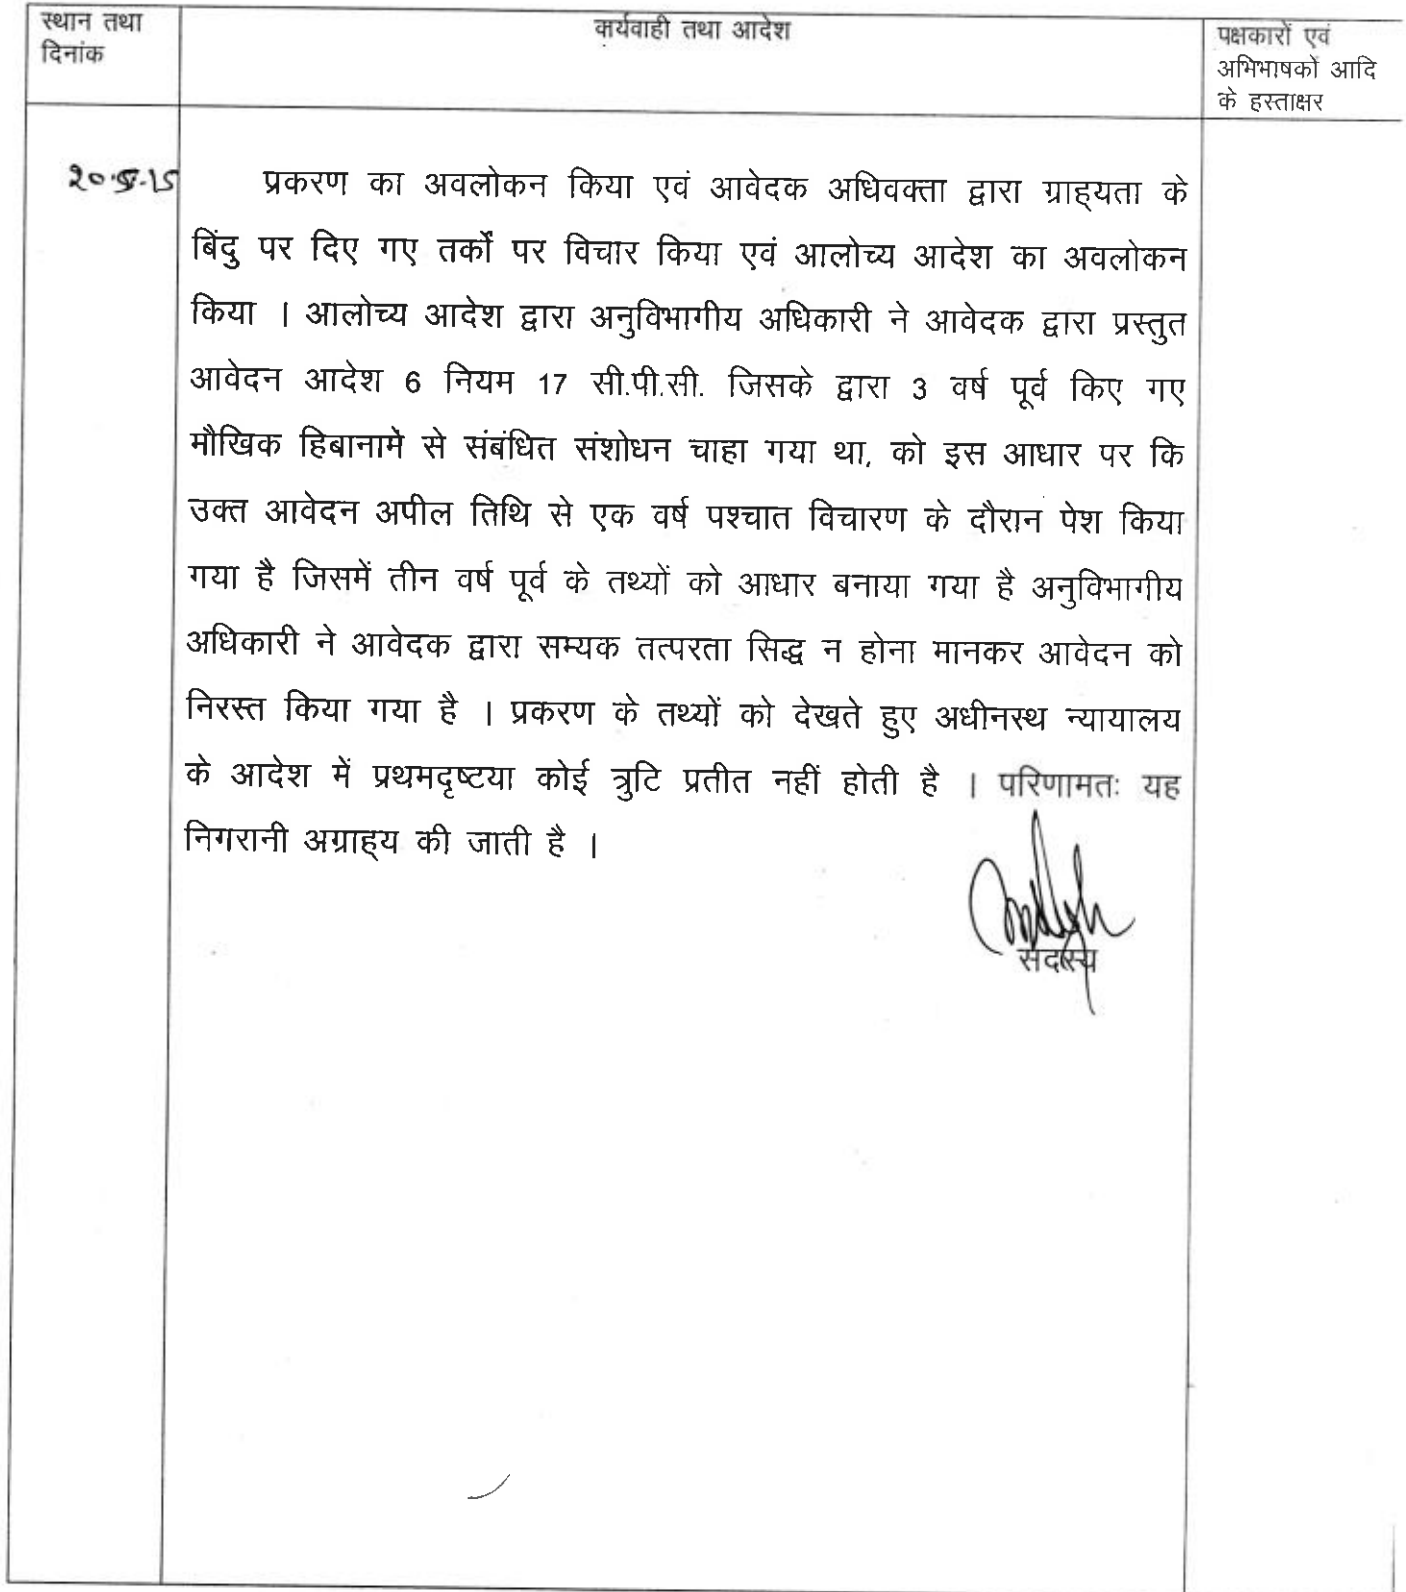 स्थान तथा
दिनांक
कार्यवाही तथा आदेश
पक्षकारों एवं
अभिभाषकों आदि
के हस्ताक्षर
प्रकरण का अवलोकन किया एवं आवेदक अधिवक्ता द्वारा ग्राह्यता के
बिंदु पर दिए गए तर्कों पर विचार किया एवं आलोच्य आदेश का अवलोकन
किया । आलोच्य आदेश द्वारा अनुविभागीय अधिकारी ने आवेदक द्वारा प्रस्तुत
आवेदन आदेश 6 नियम 17 सी.पी.सी. जिसके द्वारा 3 वर्ष पूर्व किए गए
मौखिक हिबानामे से संबंधित संशोधन चाहा गया था, को इस आधार पर कि
उक्त आवेदन अपील तिथि से एक वर्ष पश्चात विचारण के दौरान पेश किया
गया है जिसमें तीन वर्ष पूर्व के तथ्यों को आधार बनाया गया है अनुविभागीय
अधिकारी ने आवेदक द्वारा सम्यक तत्परता सिद्ध न होना मानकर आवेदन को
निरस्त किया गया है । प्रकरण के तथ्यों को देखते हुए अधीनस्थ न्यायालय
के आदेश में प्रथमदृष्टया कोई त्रुटि प्रतीत नहीं होती है । परिणामतः यह
निगरानी अग्राह्य की जाती है ।
सदस्य